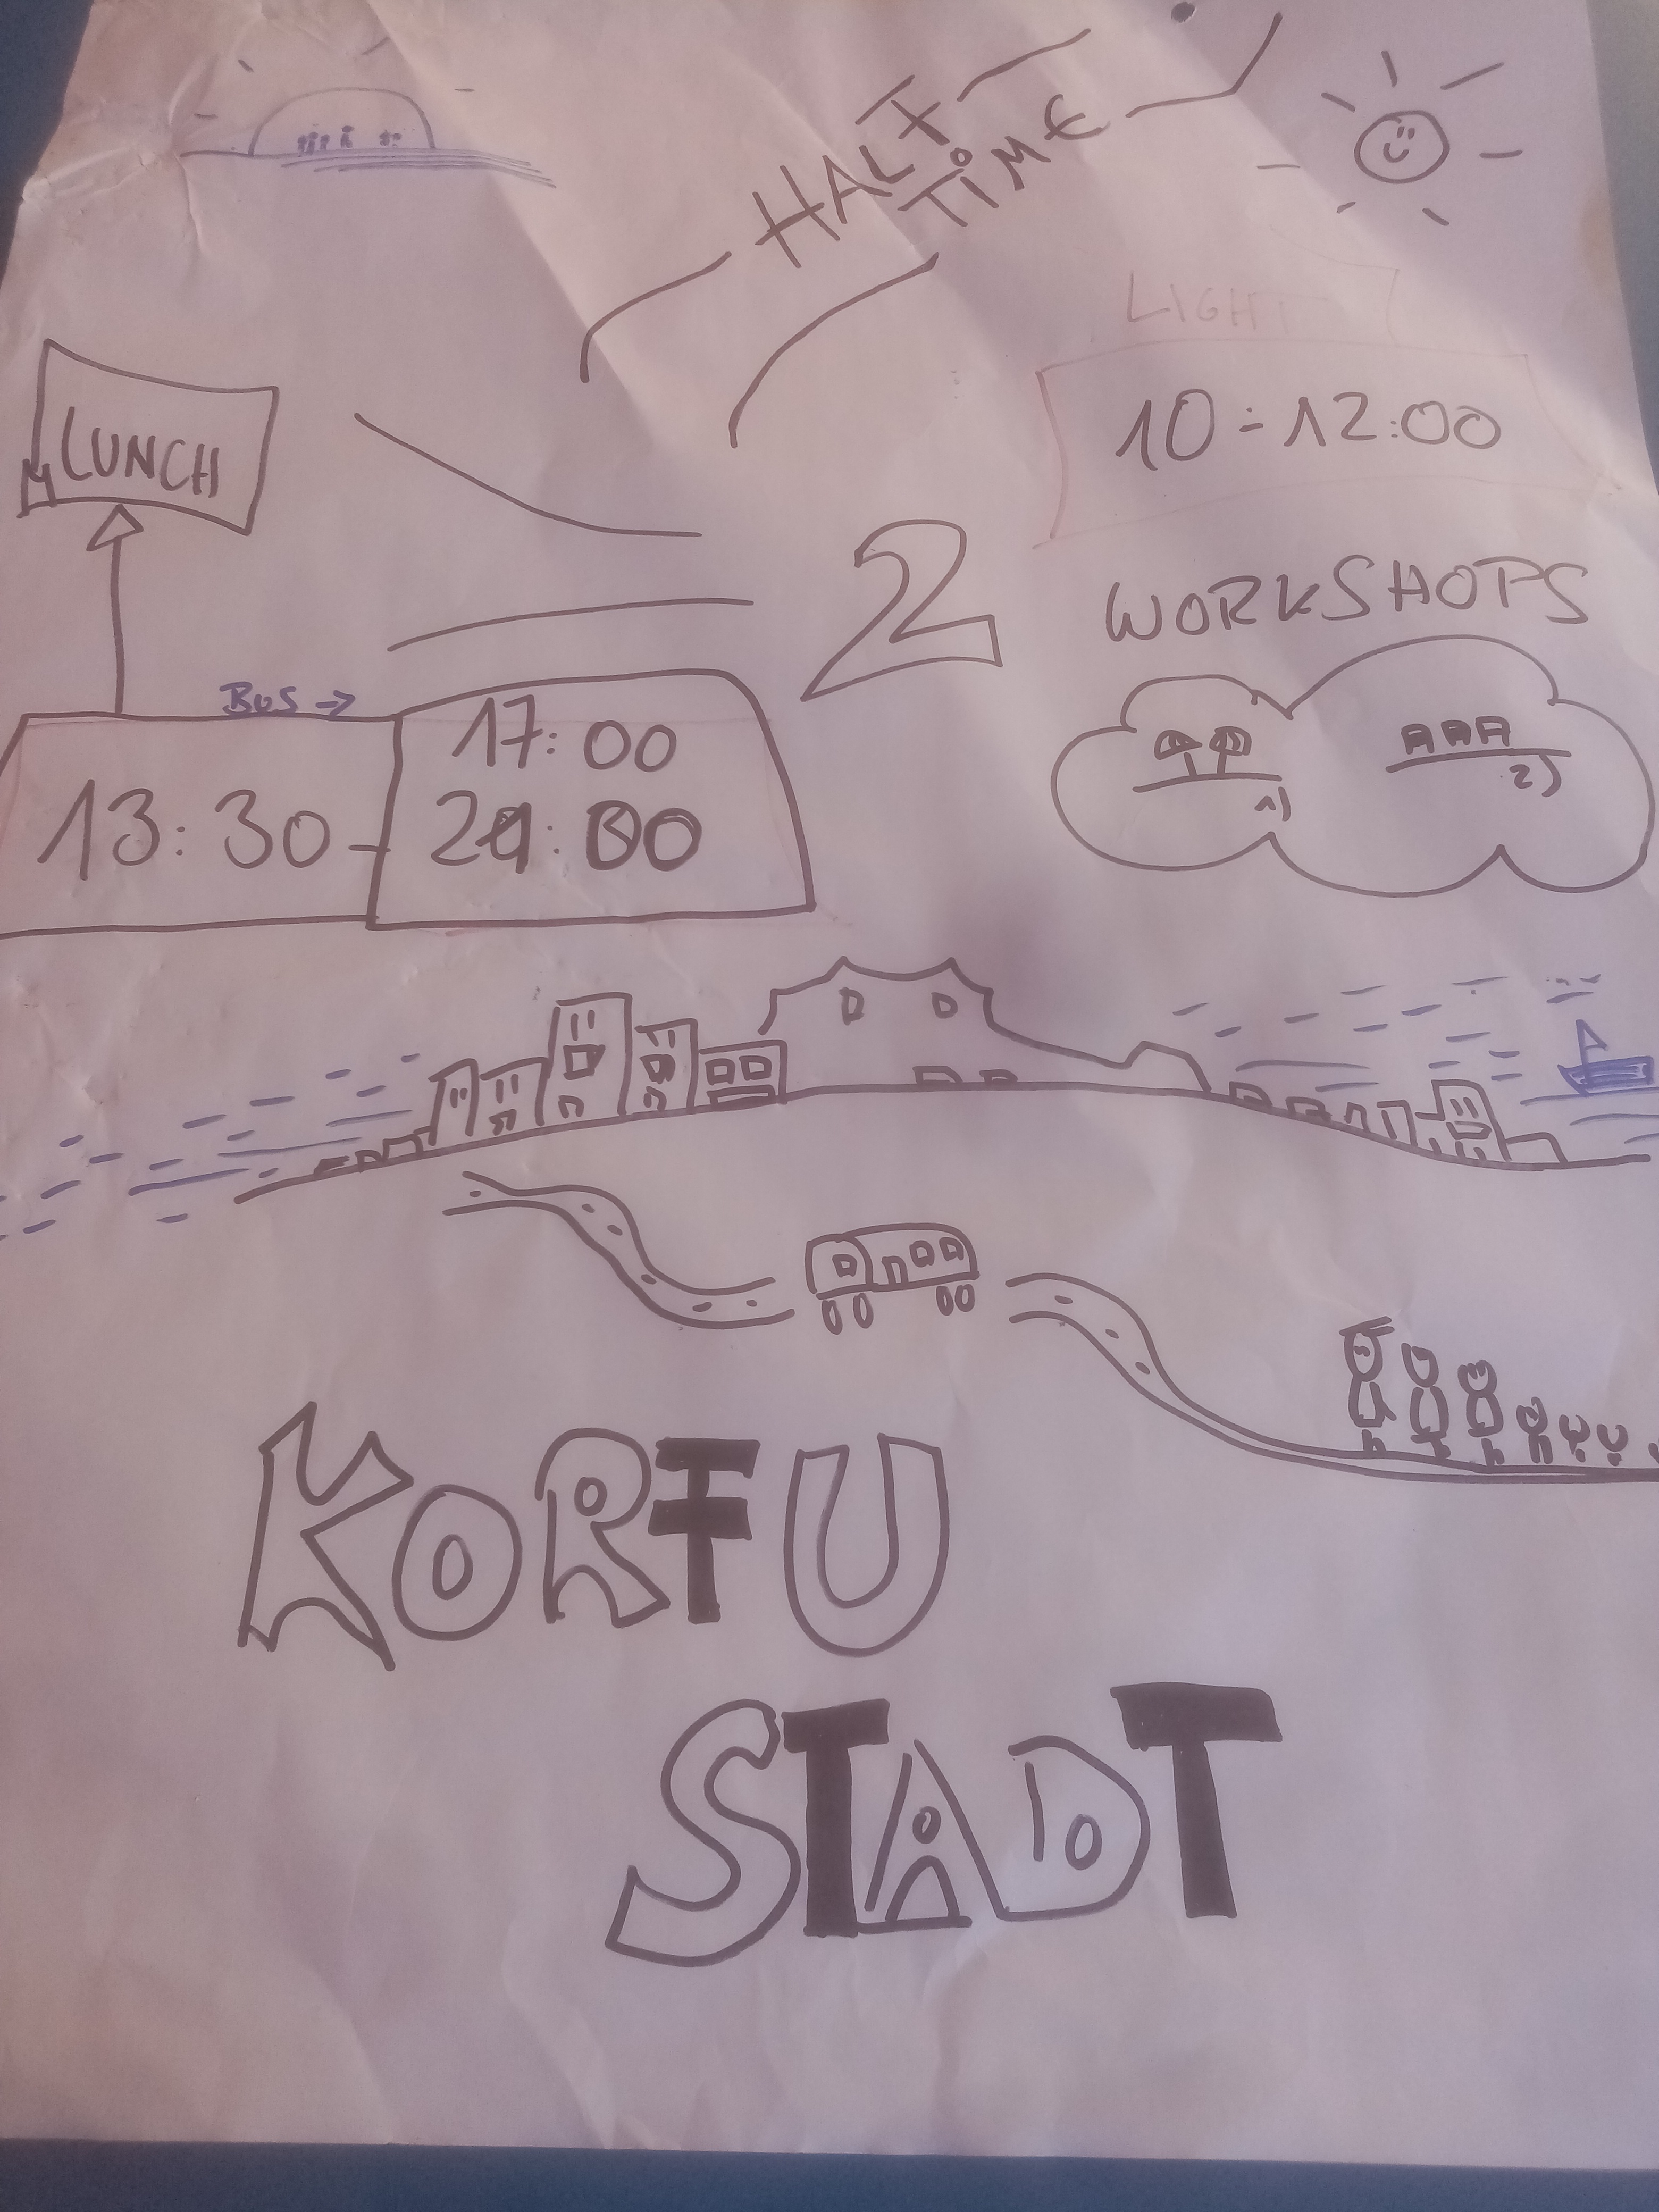 HALF
TIME
LIGHT
10-12:00
LUNCH
2
WORKSHOPS
1)
2)
BUS →
17:00
13:30 -
KORFU
STADT